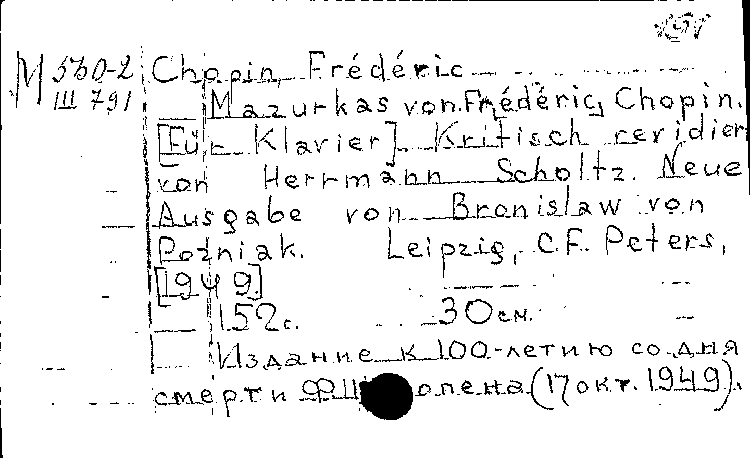 M 530-2 Chopin, Frédéric
III 791 Mazurkas von Frédéric Chopin.
[Für Klavier]. Kritisch revidiert
von Herrmann Scholtz. Neue
Ausgabe von Bronislaw von
Poźniak. Leipzig, C.F. Peters,
[1949]
152 с. 30 см.
Издание к 100-летию со дня
смерти Ф. Шопена (17 окт. 1949).